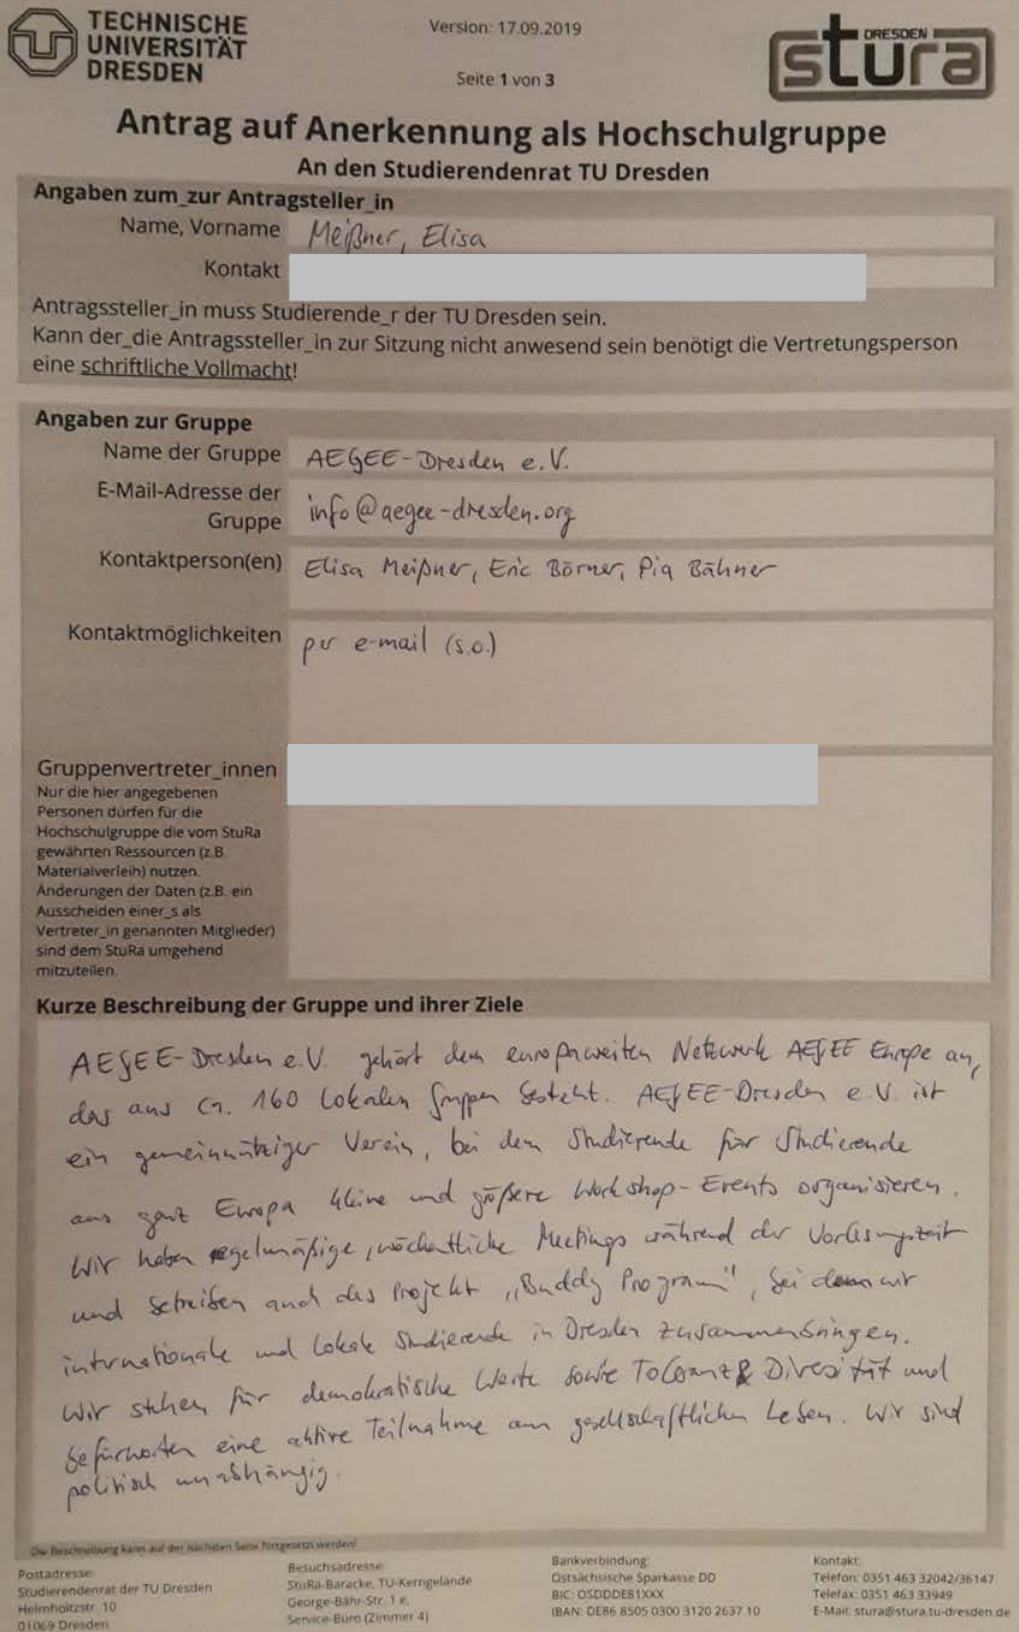 TECHNISCHE
UNIVERSITÄT
DRESDEN
Version: 17.09.2019
Seite 1 von 3
DRESDEN
stura
Antrag auf Anerkennung als Hochschulgruppe
An den Studierendenrat TU Dresden
Angaben zum_zur Antragsteller_in
Name, Vorname Meißner, Elisa
Kontakt
Antragssteller_in muss Studierende_r der TU Dresden sein.
Kann der_die Antragssteller_in zur Sitzung nicht anwesend sein benötigt die Vertretungsperson
eine schriftliche Vollmacht!
Angaben zur Gruppe
Name der Gruppe AEGEE-Dresden e.V.
E-Mail-Adresse der
Gruppe info@aegee-dresden.org
Kontaktperson(en) Elisa Meißner, Eric Börner, Pia Bähner
Kontaktmöglichkeiten per e-mail (s.o.)
Gruppenvertreter_innen
Nur die hier angegebenen
Personen dürfen für die
Hochschulgruppe die vom StuRa
gewährten Ressourcen (z.B.
Materialverleih) nutzen.
Änderungen der Daten (z.B. ein
Ausscheiden einer_s als
Vertreter_in genannten Mitglieder)
sind dem StuRa umgehend
mitzuteilen.
Kurze Beschreibung der Gruppe und ihrer Ziele
AEGEE-Dresden e.V. gehört dem europaweiten Netzwerk AEGEE Europe an,
das aus ca. 160 lokalen Gruppen besteht. AEGEE-Dresden e.V. ist
ein gemeinnütziger Verein, bei dem Studierende für Studierende
aus ganz Europa kleine und größere Workshop-Events organisieren.
Wir haben regelmäßige, wöchentliche Meetings während der Vorlesungszeit
und betreiben auch das Projekt „Buddy Program", bei dem wir
internationale und lokale Studierende in Dresden zusammenbringen.
Wir stehen für demokratische Werte sowie Toleranz & Diversität und
befürworten eine aktive Teilnahme am gesellschaftlichen Leben. Wir sind
politisch unabhängig.
Die Beschreibung kann auf der nächsten Seite fortgesetzt werden!
Postadresse:
Studierendenrat der TU Dresden
Helmholtzstr. 10
01069 Dresden
Besuchsadresse:
StuRa-Baracke, TU-Kerngelände
George-Bähr-Str. 1 e,
Service-Büro (Zimmer 4)
Bankverbindung:
Ostsächsische Sparkasse DD
BIC: OSDDDE81XXX
IBAN: DE86 8505 0300 3120 2637 10
Kontakt:
Telefon: 0351 463 32042/36147
Telefax: 0351 463 33949
E-Mail: stura@stura.tu-dresden.de